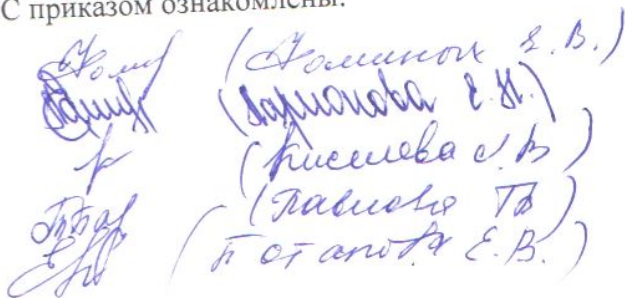 С приказом ознакомлены:
(Фоминых Е. В.)
(Ларионова Е. Н.)
(Киселева Л. В)
(Павлова ТВ)
(Потапова Е. В.)